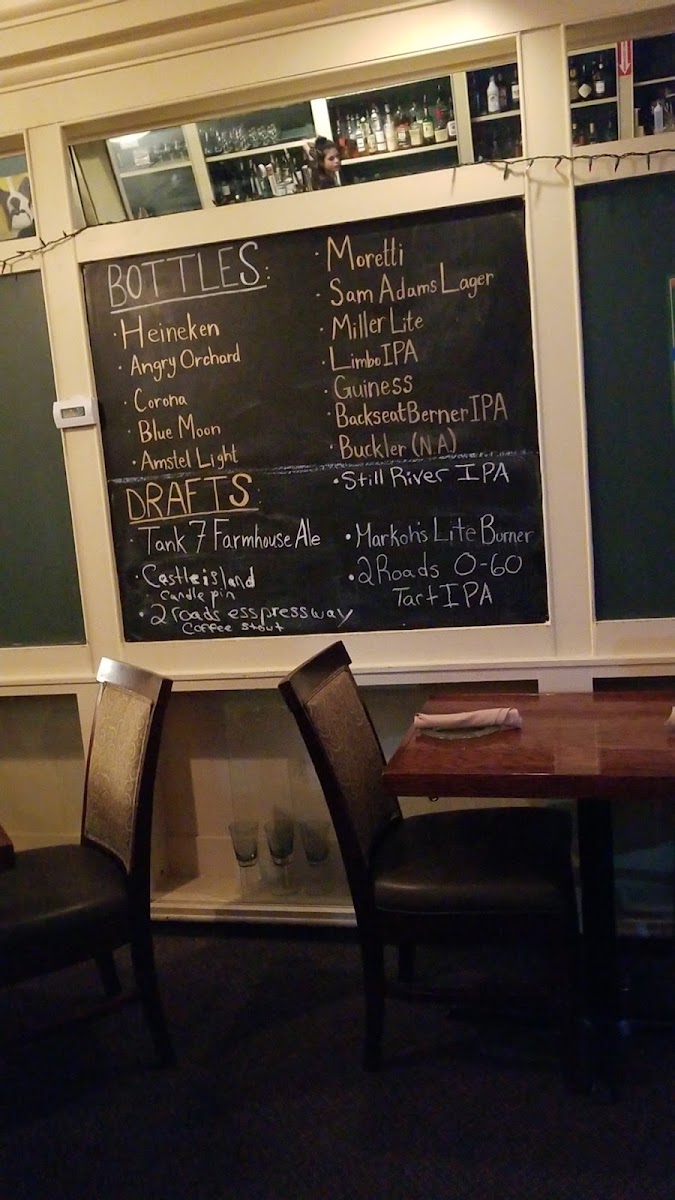 BOTTLES:
· Heineken
· Angry Orchard
· Corona
· Blue Moon
· Amstel Light
· Moretti
· Sam Adams Lager
· Miller Lite
· Limbo IPA
Guiness
· Backseat Berner IPA
· Buckler (N.A)
• Still River IPA
DRAFTS:
· Tank 7 Farmhouse Ale
· Castle island
· Candle pin
• 2 roads esspressway
Coffee stout
• Markoh's Lite Burner
• 2 Roads 0-60
Tart IPA